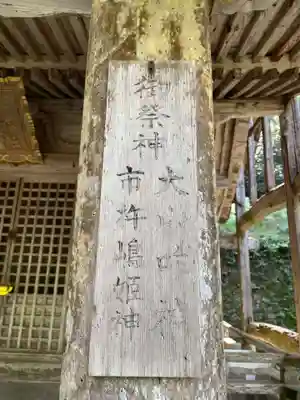 御祭神
大山咋神
市杵嶋姫神